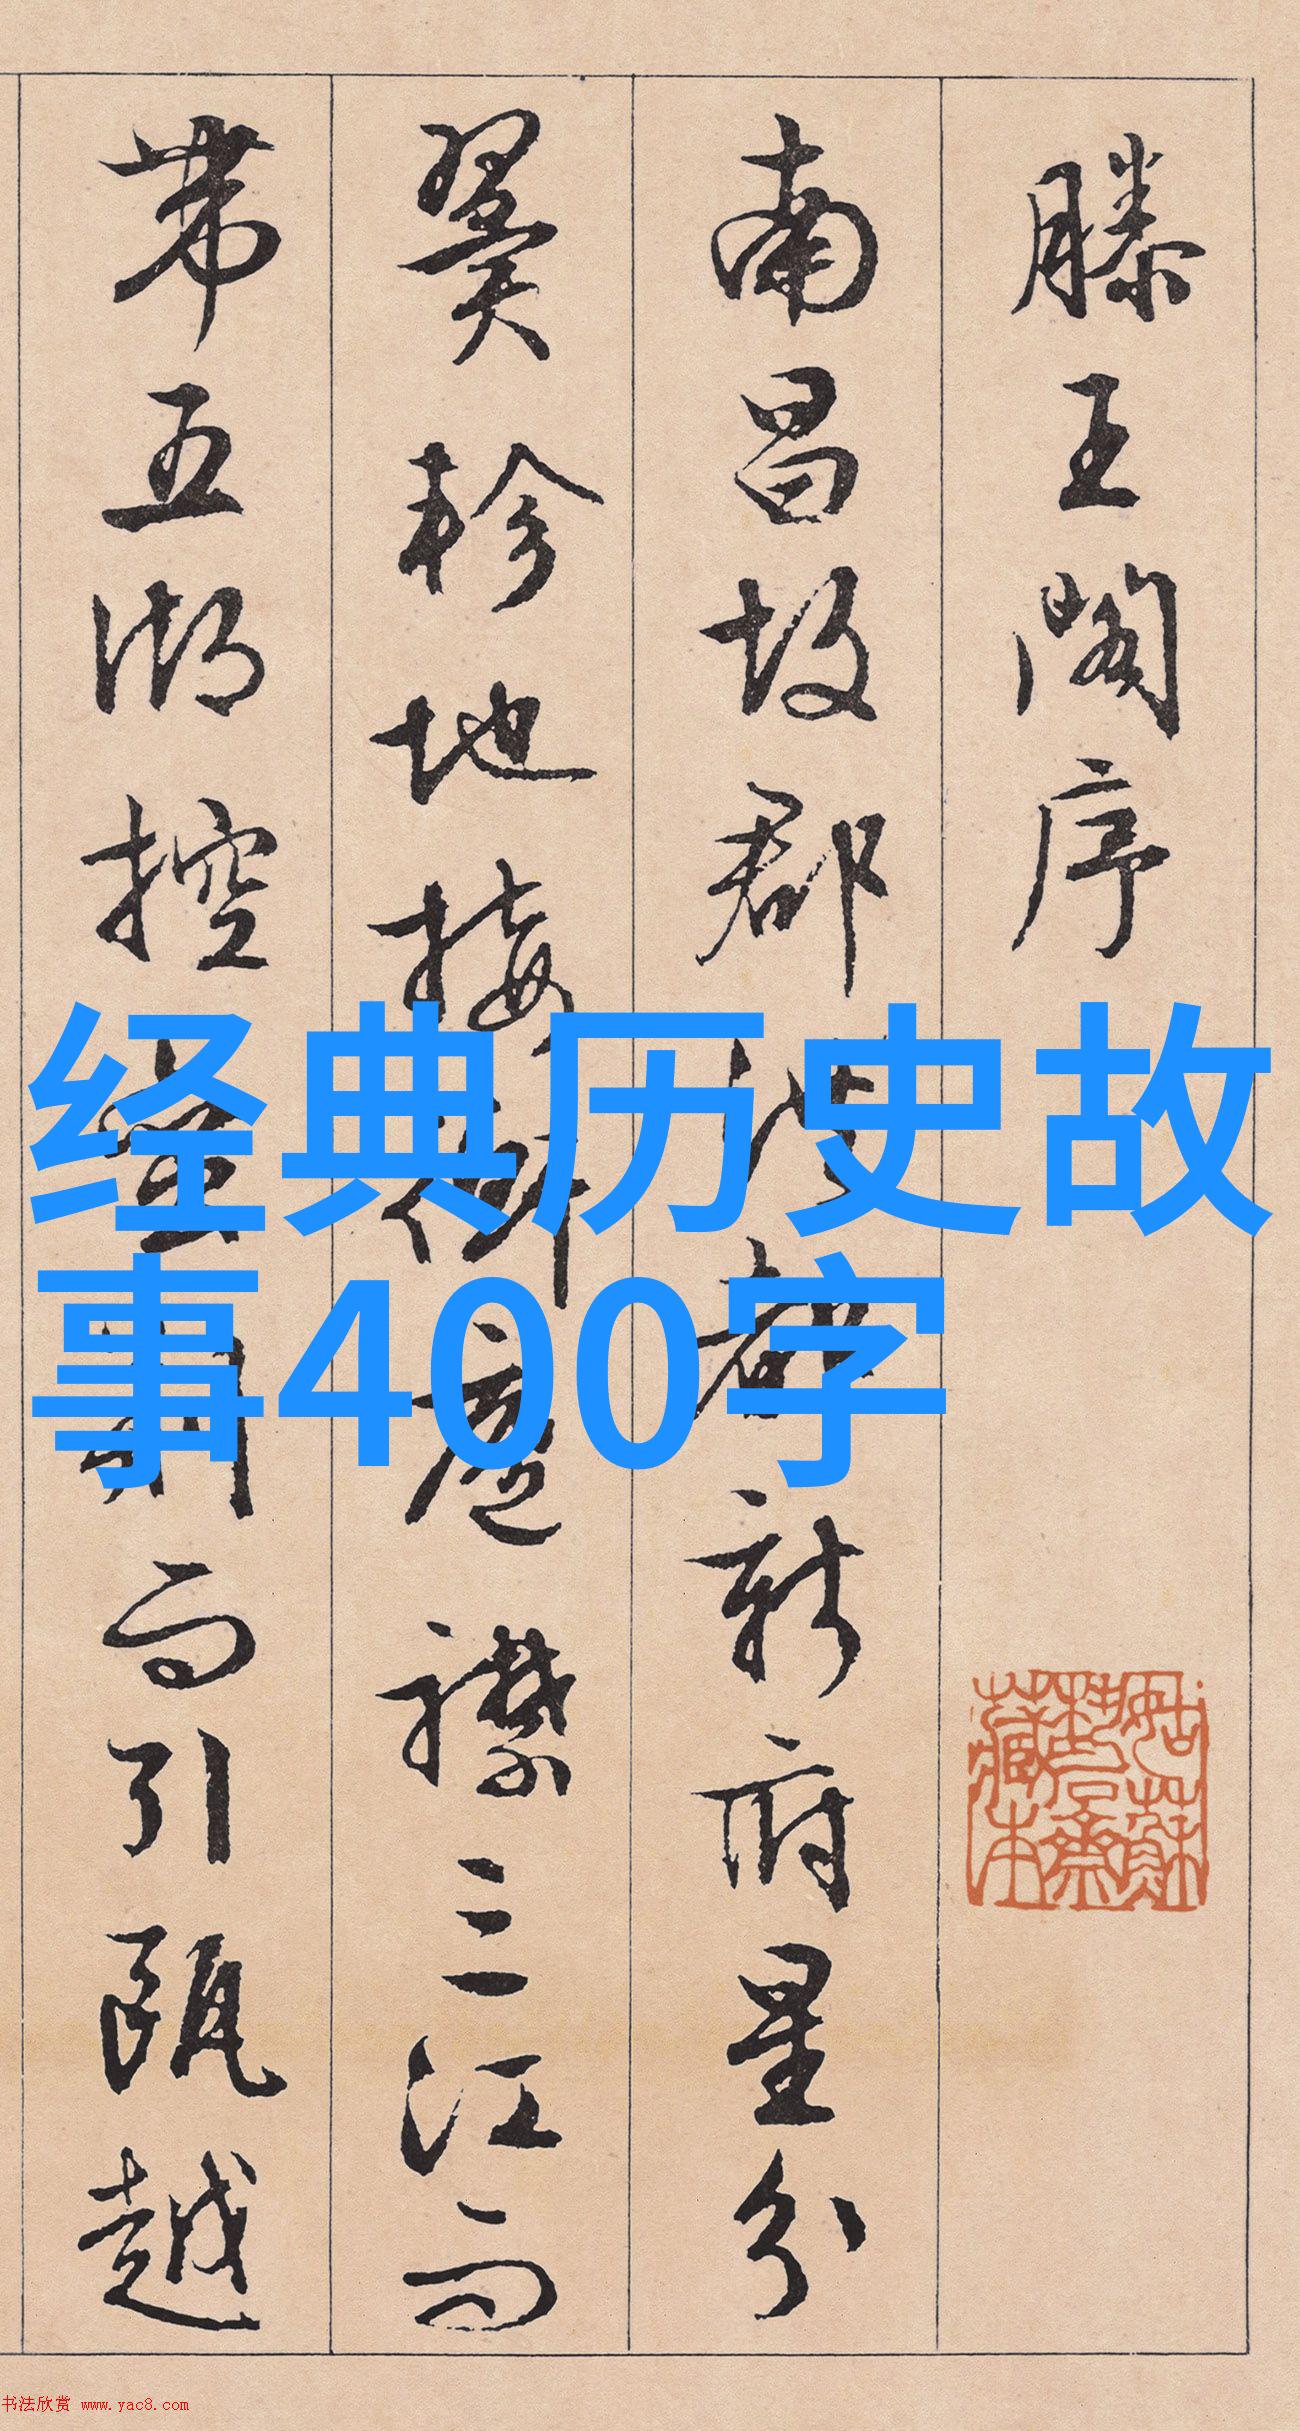 滕王閣序
南昌故郡洪都新府星分
翼軫地接衡廬襟三江而
帶五湖控蠻荊而引甌越
经典历史故
事400字
书法欣赏 www.yac8.com